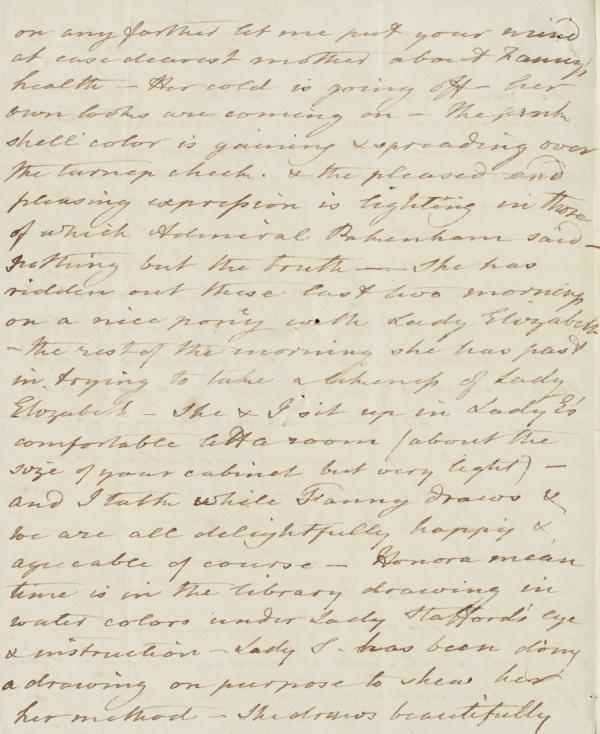 on any farther let me put your mind
at ease dearest mother about Fanny's
health – Her cold is going off – her
own looks are coming on – the pink
shell color is gaining & spreading over
the turnep cheek. & the pleased and
pleasing expression is lighting in those
of which Admiral Pakenham said –
nothing but the truth – She has
ridden out these last two mornings
on a nice pony with Lady Elizabeth
– the rest of the morning she has past
in trying to take a likeness of Lady
Elizabeth – She & I sit up in Lady E's
comfortable little room (about the
size of your cabinet but very light) –
and I talk while Fanny draws &
we are all delightfully happy &
agreeable of course – Honora mean
time is in the library drawing in
water colors under Lady Stafford's eye
& instruction – Lady S. has been doing
a drawing on purpose to shew her
her method – She draws beautifully